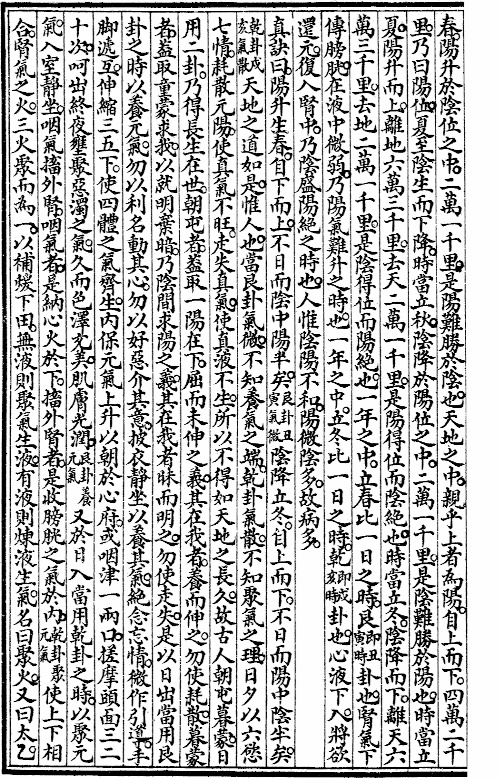 春陽升於陰位之中二萬一千里是陽難勝於陰也天地之中親乎上者為陽自上而下四萬二千
里乃曰陽位夏至陰生而下降時當立秋陰降於陽位之中二萬一千里是陰難勝於陽也時當立
夏陽升而上離地六萬三千里去天二萬一千里是陽得位而陰絕也時當立冬陰降而下離天六
萬三千里去地二萬一千里是陰得位而陽絕也一年之中立春比一日之時艮即丑寅時卦也腎氣下
傳膀胱在液中微弱乃陽氣難升之時也一年之中立冬比一日之時乾即戌亥時卦也心液下入將欲
還元復入腎中乃陰盛陽絕之時也人惟陰陽不和陽微陰多故病多
真訣曰陽升生春自下而上不日而陰中陽半矣艮卦丑寅氣微陰降立冬自上而下不日而陽中陰半矣
乾卦戌亥氣散天地之道如是惟人也當艮卦氣微不知養氣之端乾卦氣散不知聚氣之理日夕以六慾
七情耗散元陽使真氣不旺走失真氣使真液不生所以不得如天地之長久故古人朝屯暮蒙日
用二卦乃得長生在世朝屯者蓋取一陽在下屈而未伸之義其在我者養而伸之勿使耗散暮蒙
者蓋取童蒙求我以就明棄暗乃陰間求陽之義其在我者昧而明之勿使走失是以日出當用艮
卦之時以養元氣勿以利名動其心勿以好惡介其意披夜靜坐以養其氣絕念忘情微作引導手
脚遞互伸縮三五下使四體之氣齊生內保元氣上升以朝於心府或咽津一兩口搓摩頭面三二
十次呵出終夜壅聚惡濁之氣久而色澤充美肌膚光潤艮卦養元氣又於日入當用乾卦之時以聚元
氣入室靜坐咽氣搐外腎咽氣者是納心火於下搐外腎者是收膀胱之氣於內乾卦聚元氣使上下相
合腎氣之火三火聚而為一以補煖下田無液則聚氣生液有液則煉液生氣名曰聚火又曰太乙